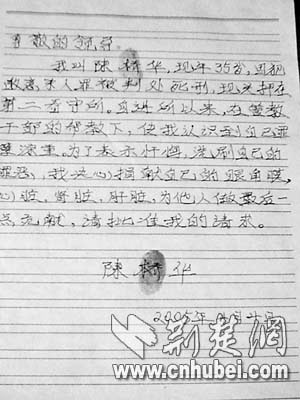 尊敬的领导:
我叫陳树华,现年35岁,因犯
故意杀人罪被判处死刑,现关押在
第二看守所。自进所以来,在管教
干部的帮教下,使我认识到自己罪
孽深重。为了表示忏悔,洗刷自己的
罪恶,我决心捐献自己的眼角膜,
心脏,肾脏,肝脏,为他人做最后一
点贡献,请批准我的请求。
陳树华
2005年 月十日
荆楚網
www.cnhubei.com